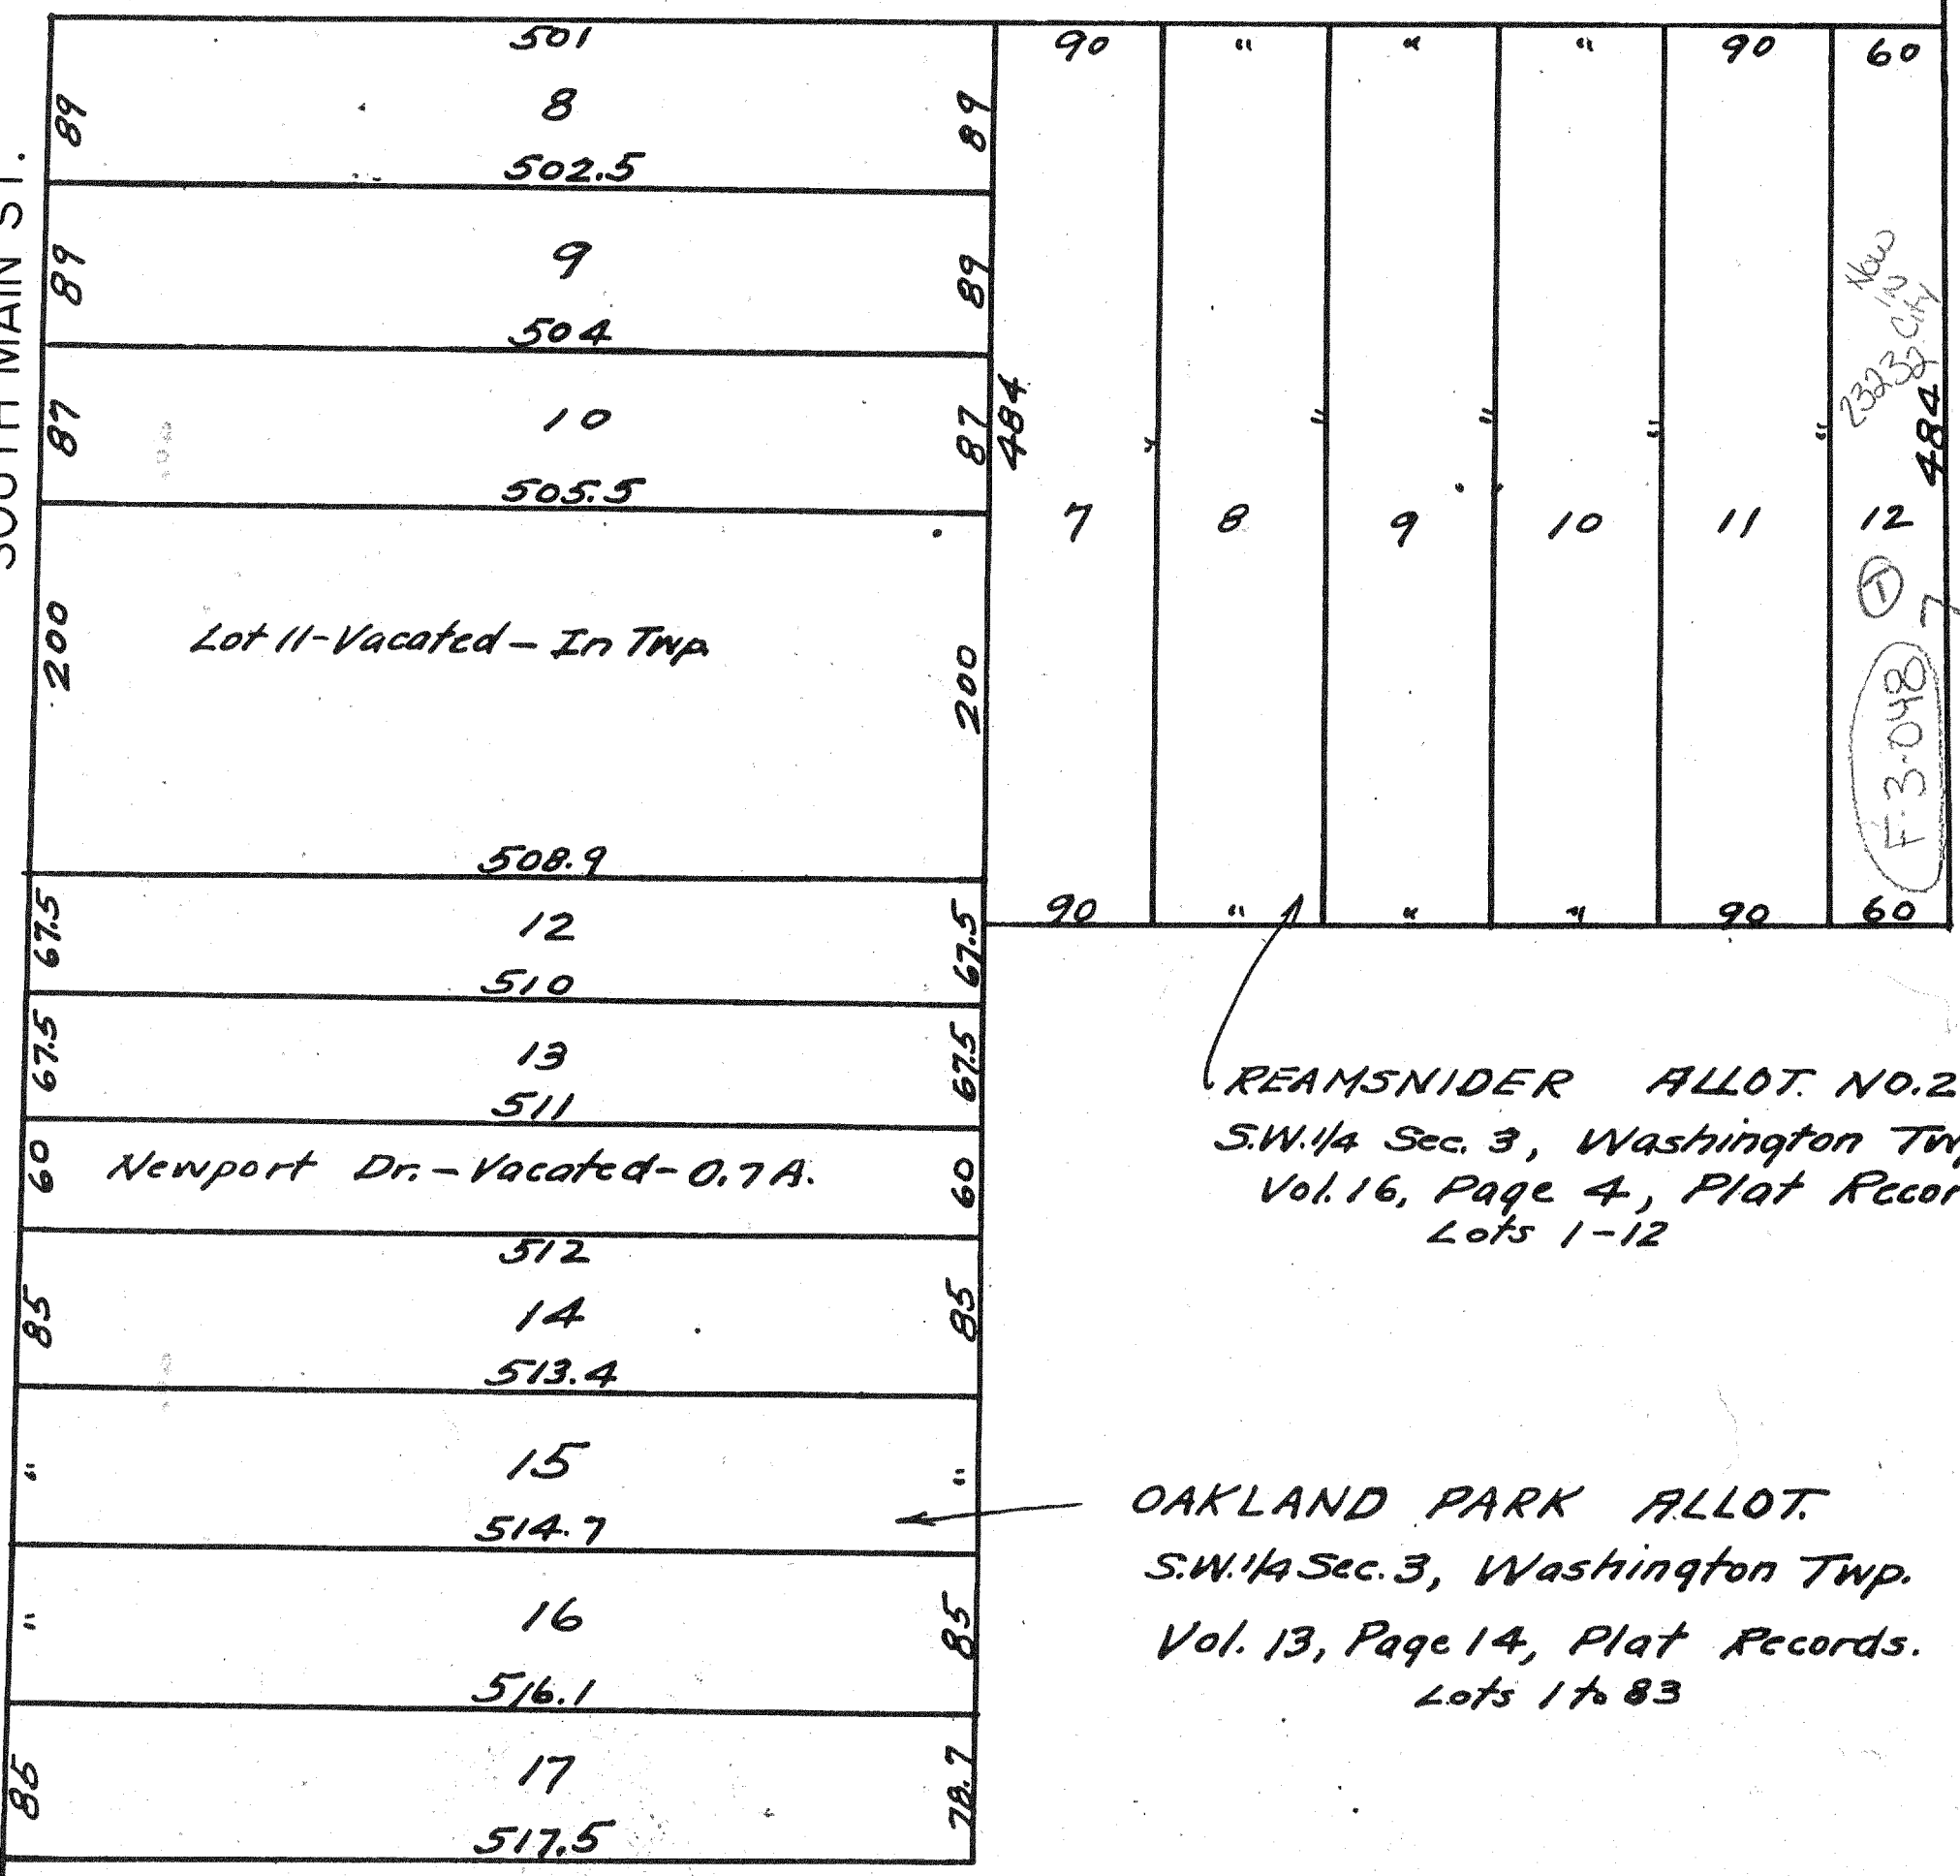 SOUTH MAIN ST.
501
89 8 89
502.5
89 9 89
504
87 10 87
505.5
200 Lot 11-Vacated - In Twp. 200
508.9
67.5 12 67.5
510
67.5 13 67.5
511
60 Newport Dr. - Vacated - 0.7 A. 60
512
85 14 85
513.4
" 15 "
514.7
" 16 85
516.1
85 17 78.7
517.5
90 " " " 90 60
484 " " " " " 484
7 8 9 10 11 12
90 " " " 90 60
Now
in
City
23232
T
7
F-3-048
REAMSNIDER ALLOT. NO. 2
S.W. 1/4 Sec. 3, Washington Tw
Vol. 16, Page 4, Plat Recor
Lots 1-12
OAKLAND PARK ALLOT.
S.W. 1/4 Sec. 3, Washington Twp.
Vol. 13, Page 14, Plat Records.
Lots 1 to 83